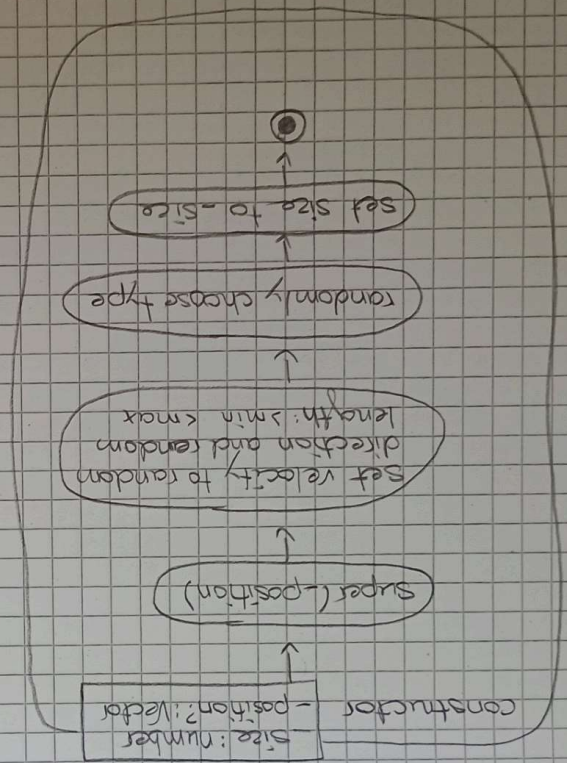 _size: number
constructor
_position?: Vector
super(_position)
set velocity to random
direction and random
length: >min <max
randomly choose type
set size to _size